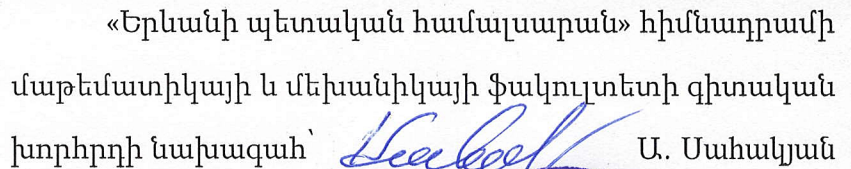 «Երևանի պետական համալսարան» հիմնադրամի
մաթեմատիկայի և մեխանիկայի ֆակուլտետի գիտական
խորհրդի նախագահ՝ Ա. Սահակյան